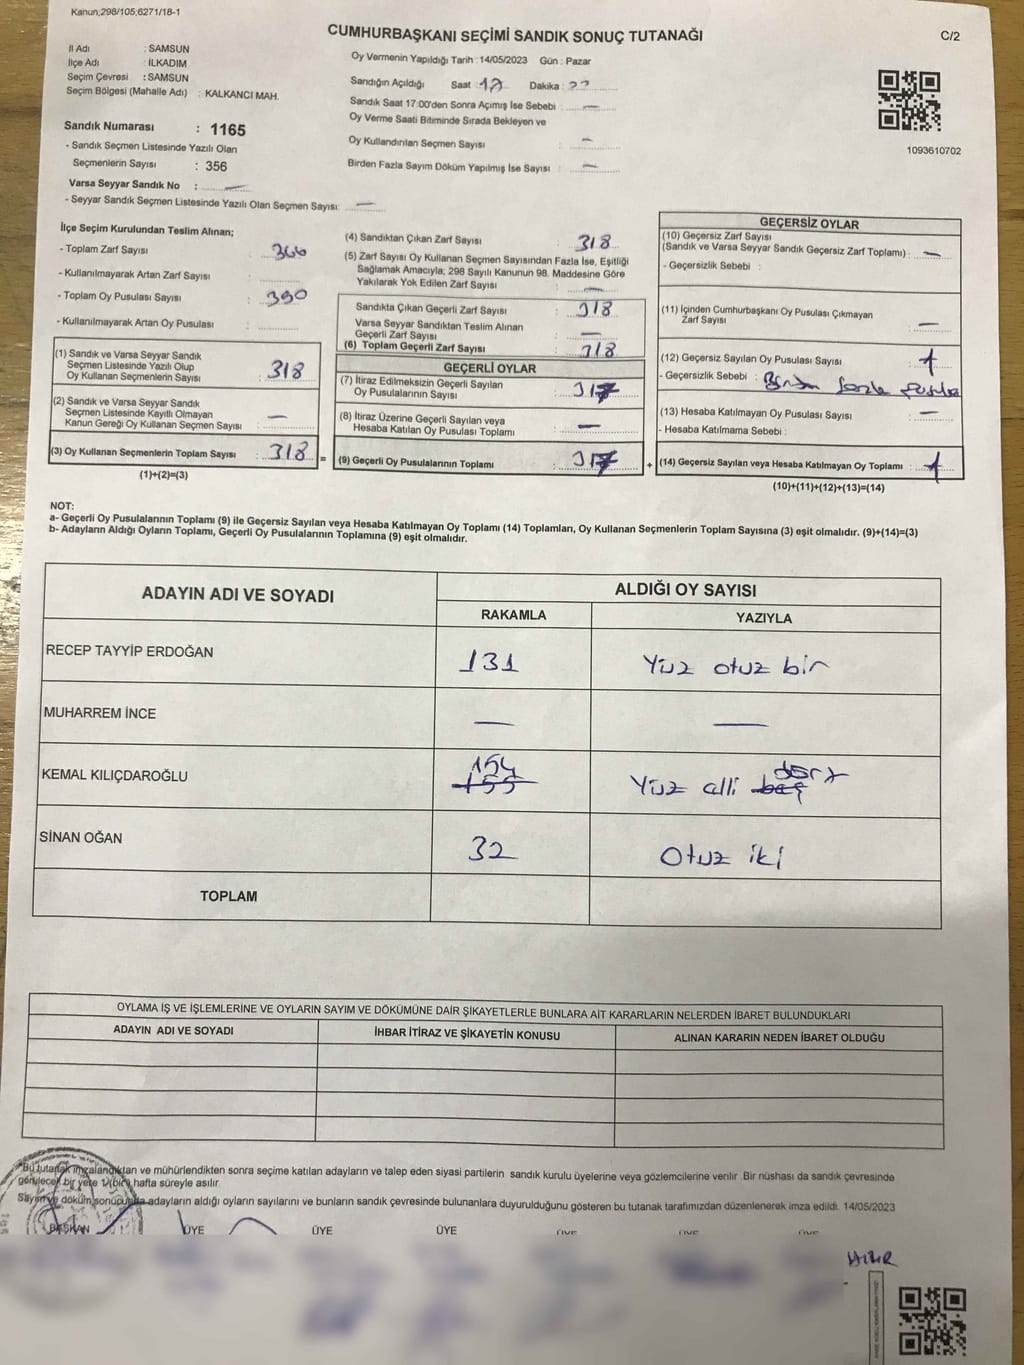 Kanun;298/105,6271/18-1
CUMHURBAŞKANI SEÇİMİ SANDIK SONUÇ TUTANAĞI
C/2
İl Adı : SAMSUN
İlçe Adı : İLKADIM
Seçim Çevresi : SAMSUN
Seçim Bölgesi (Mahalle Adı) : KALKANCI MAH.
Oy Vermenin Yapıldığı Tarih : 14/05/2023 Gün : Pazar
Sandığın Açıldığı Saat : 17 Dakika :
Sandık Saat 17:00'den Sonra Açımış İse Sebebi : —
Oy Verme Saati Bitiminde Sırada Bekleyen ve
Oy Kullandırılan Seçmen Sayısı : —
Birden Fazla Sayım Döküm Yapılmış İse Sayısı : —
1093610702
Sandık Numarası : 1165
- Sandık Seçmen Listesinde Yazılı Olan
Seçmenlerin Sayısı : 356
Varsa Seyyar Sandık No : —
- Seyyar Sandık Seçmen Listesinde Yazılı Olan Seçmen Sayısı: —
İlçe Seçim Kurulundan Teslim Alınan;
- Toplam Zarf Sayısı : 366
- Kullanılmayarak Artan Zarf Sayısı :
- Toplam Oy Pusulası Sayısı : 390
- Kullanılmayarak Artan Oy Pusulası :
(1) Sandık ve Varsa Seyyar Sandık
Seçmen Listesinde Yazılı Olup
Oy Kullanan Seçmenlerin Sayısı : 318
(2) Sandık ve Varsa Seyyar Sandık
Seçmen Listesinde Kayıtlı Olmayan
Kanun Gereği Oy Kullanan Seçmen Sayısı : —
(3) Oy Kullanan Seçmenlerin Toplam Sayısı : 318 =
(1)+(2)=(3)
(4) Sandıktan Çıkan Zarf Sayısı : 318
(5) Zarf Sayısı Oy Kullanan Seçmen Sayısından Fazla İse, Eşitliği
Sağlamak Amacıyla; 298 Sayılı Kanunun 98. Maddesine Göre
Yakılarak Yok Edilen Zarf Sayısı : —
Sandıkta Çıkan Geçerli Zarf Sayısı : 318
Varsa Seyyar Sandıktan Teslim Alınan
Geçerli Zarf Sayısı : —
(6) Toplam Geçerli Zarf Sayısı : 318
GEÇERLİ OYLAR
(7) İtiraz Edilmeksizin Geçerli Sayılan
Oy Pusulalarının Sayısı : 317
(8) İtiraz Üzerine Geçerli Sayılan veya
Hesaba Katılan Oy Pusulası Toplamı : —
(9) Geçerli Oy Pusulalarının Toplamı : 317 +
GEÇERSİZ OYLAR
(10) Geçersiz Zarf Sayısı
(Sandık ve Varsa Seyyar Sandık Geçersiz Zarf Toplamı) : —
- Geçersizlik Sebebi :
(11) İçinden Cumhurbaşkanı Oy Pusulası Çıkmayan
Zarf Sayısı : —
(12) Geçersiz Sayılan Oy Pusulası Sayısı : 1
- Geçersizlik Sebebi : Birden fazla pusula
(13) Hesaba Katılmayan Oy Pusulası Sayısı : —
- Hesaba Katılmama Sebebi :
(14) Geçersiz Sayılan veya Hesaba Katılmayan Oy Toplamı : 1
(10)+(11)+(12)+(13)=(14)
NOT:
a- Geçerli Oy Pusulalarının Toplamı (9) ile Geçersiz Sayılan veya Hesaba Katılmayan Oy Toplamı (14) Toplamları, Oy Kullanan Seçmenlerin Toplam Sayısına (3) eşit olmalıdır. (9)+(14)=(3)
b- Adayların Aldığı Oyların Toplamı, Geçerli Oy Pusulalarının Toplamına (9) eşit olmalıdır.
ADAYIN ADI VE SOYADI
ALDIĞI OY SAYISI
RAKAMLA YAZIYLA
RECEP TAYYİP ERDOĞAN 131 Yüz otuz bir
MUHARREM İNCE — —
154 dört
KEMAL KILIÇDAROĞLU 155 Yüz alli beş
SİNAN OĞAN 32 Otuz iki
TOPLAM
OYLAMA İŞ VE İŞLEMLERİNE VE OYLARIN SAYIM VE DÖKÜMÜNE DAİR ŞİKAYETLERLE BUNLARA AİT KARARLARIN NELERDEN İBARET BULUNDUKLARI
ADAYIN ADI VE SOYADI İHBAR İTİRAZ VE ŞİKAYETİN KONUSU ALINAN KARARIN NEDEN İBARET OLDUĞU
*Bu tutanak imzalandıktan ve mühürlendikten sonra seçime katılan adayların ve talep eden siyasi partilerin sandık kurulu üyelerine veya gözlemcilerine verilir. Bir nüshası da sandık çevresinde
görülecek bir yere 1 (bir) hafta süreyle asılır.
Sayım ve döküm sonucunda adayların aldığı oyların sayılarını ve bunların sandık çevresinde bulunanlara duyurulduğunu gösteren bu tutanak tarafımızdan düzenlenerek imza edildi. 14/05/2023
BAŞKAN ÜYE ÜYE ÜYE ÜYE ÜYE ÜYE